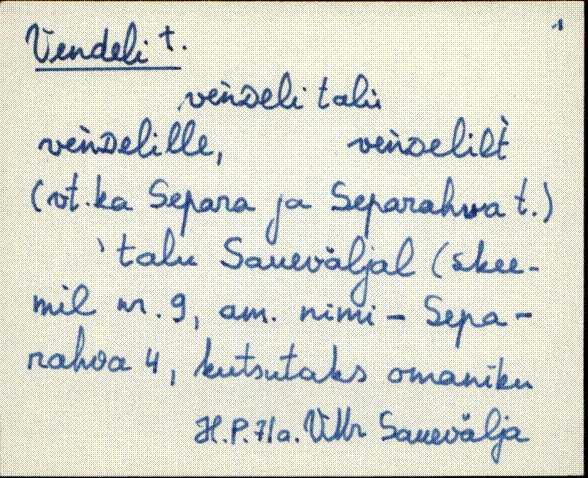 1
Vendeli t.
vèǹᴅeli talu
vèǹᴅelille, vèǹᴅelilt̀
(vt. ka Separa ja Separahva t.)
talu Saueväljal (skee-
mil nr. 9, am. nimi - Sepa-
rahva 4, kutsutaks omaniku
H.P. 71a. VMr Sauevälja